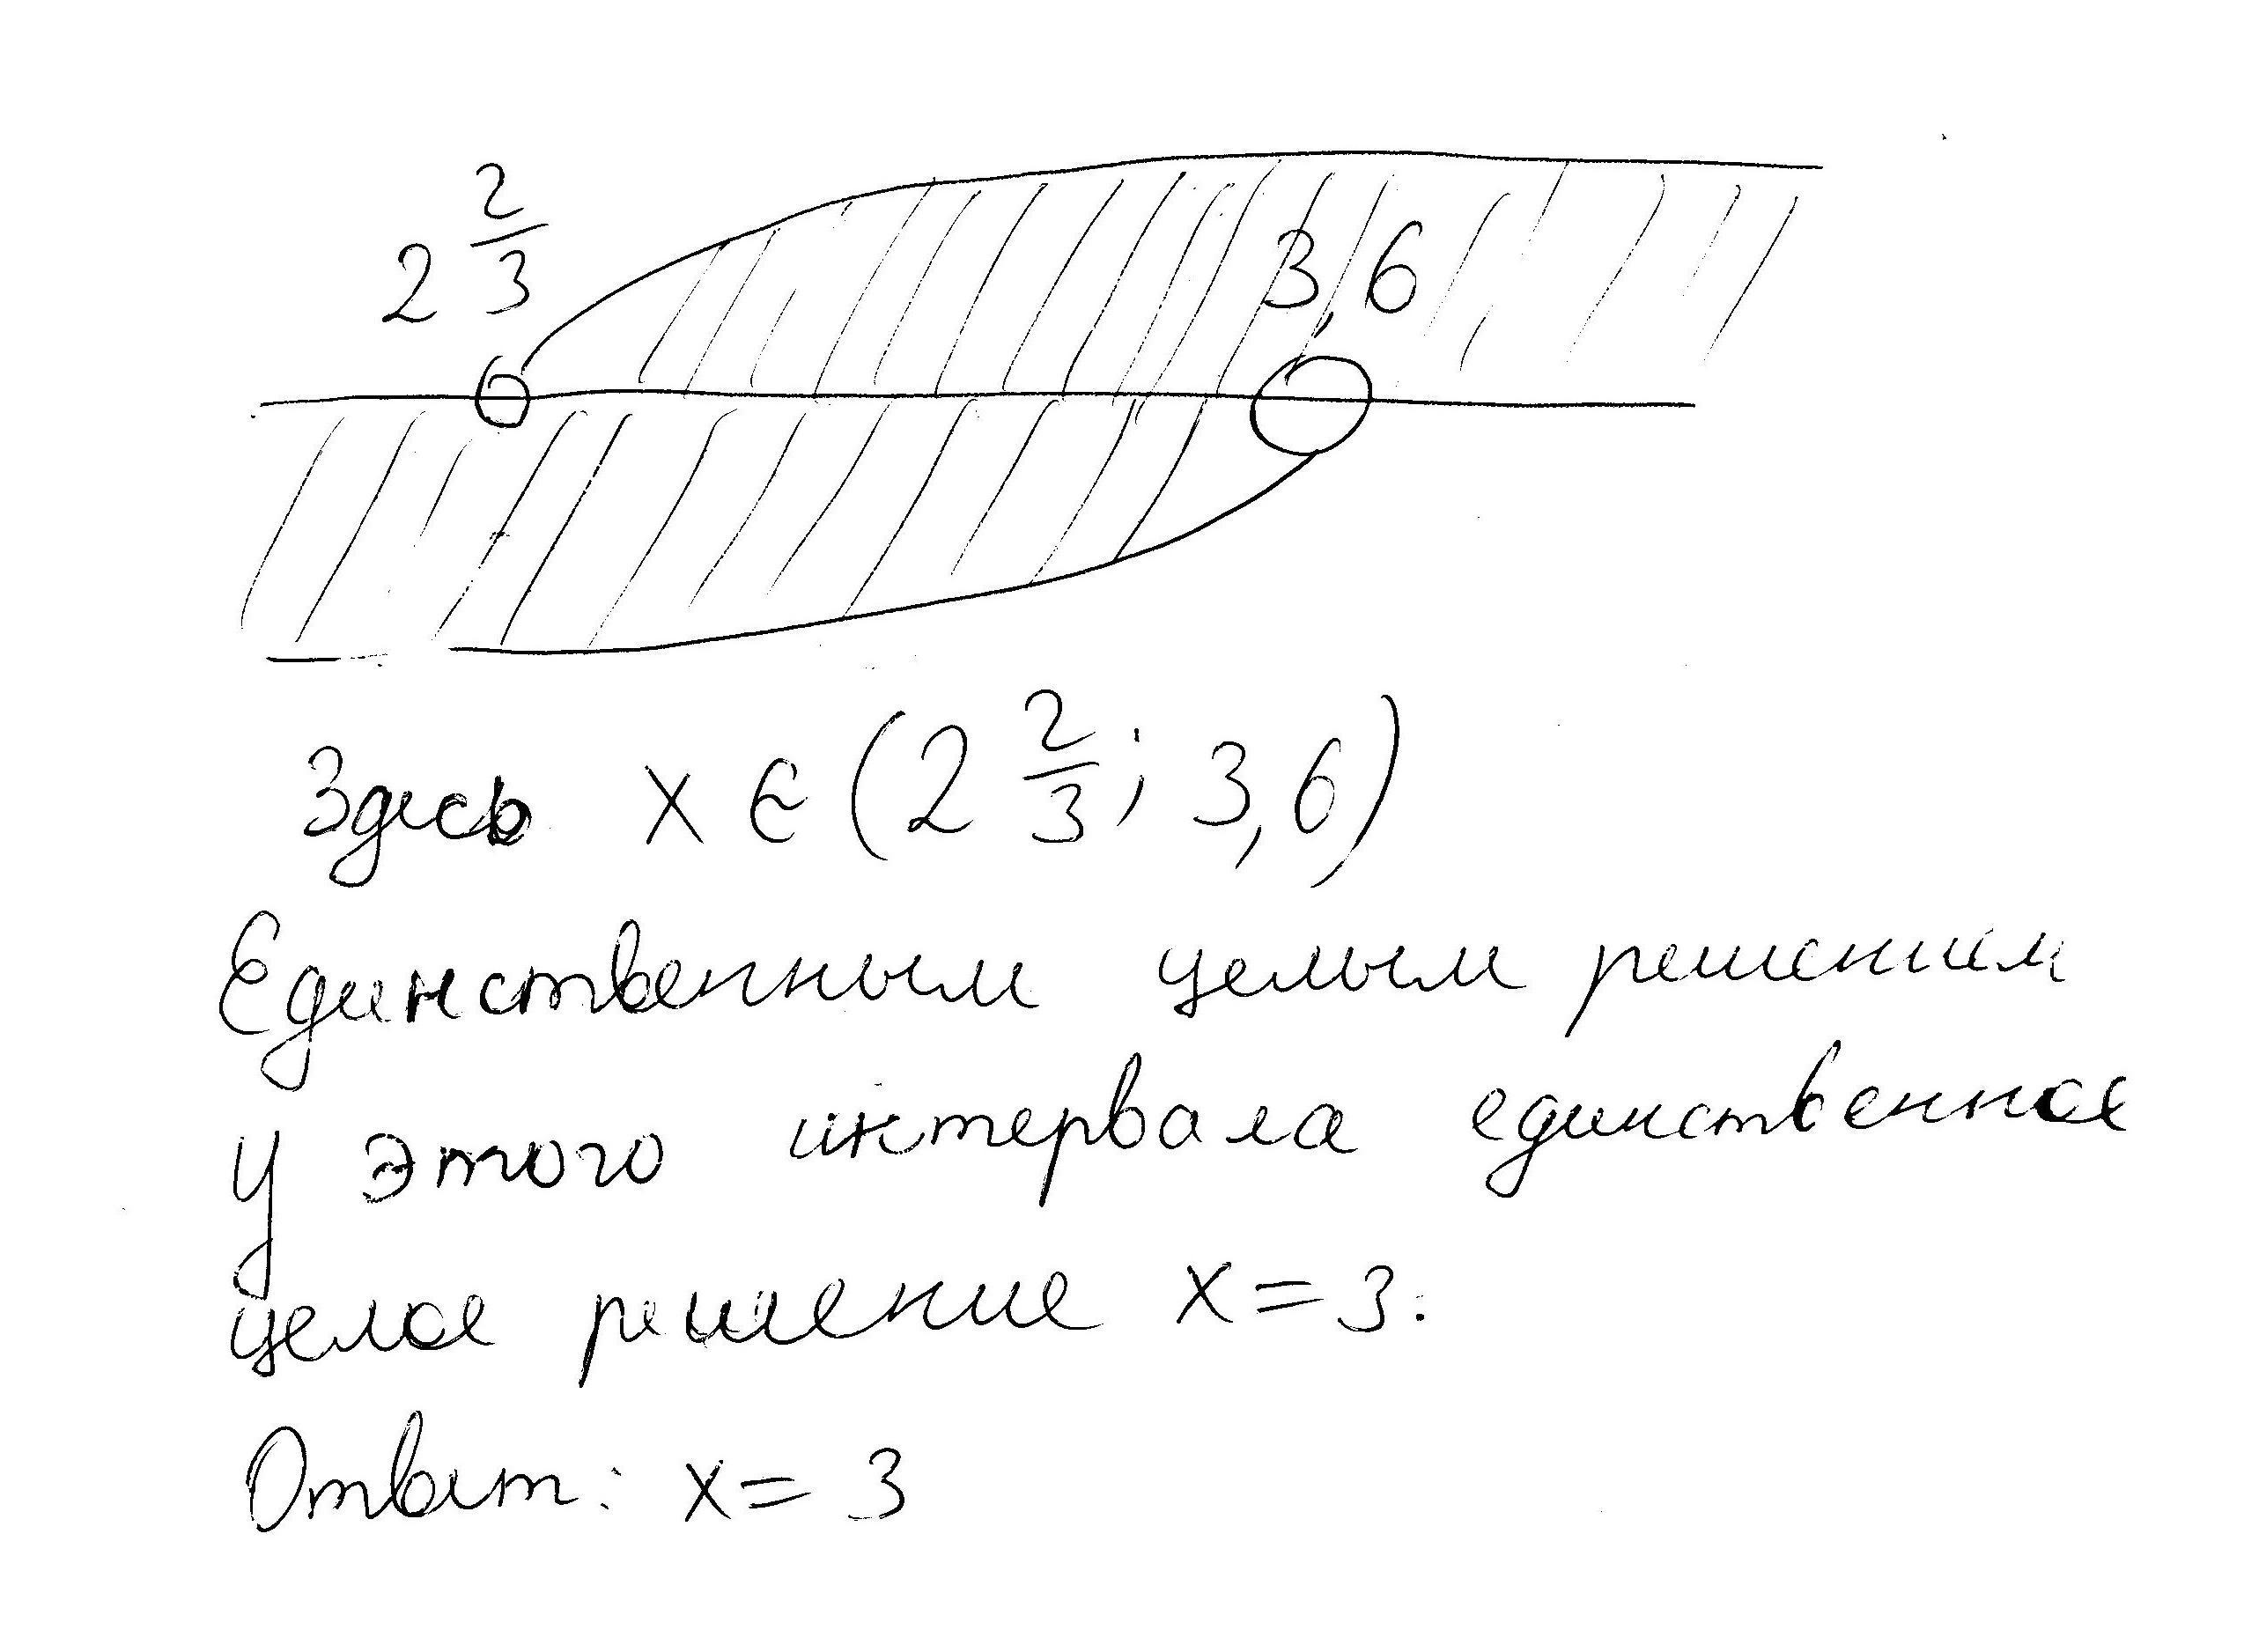 2 2/3 3,6
Здесь x ∈ (2 2/3; 3,6)
Единственным целым решением
у этого интервала единственное
целое решение x = 3.
Ответ: x = 3